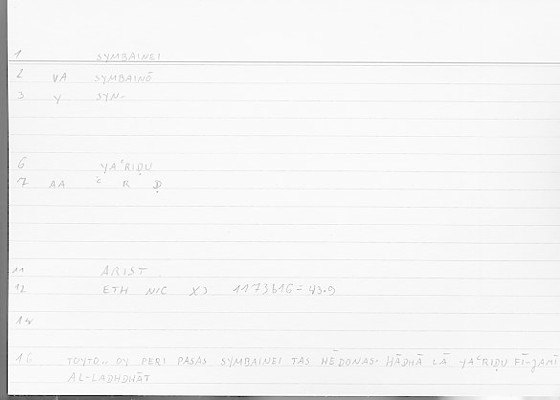 1 SYMBAINEI
2 VA SYMBAINŌ
3 Y SYN-
6 YAʿRIḌU
7 AA ʿ R Ḍ
11 ARIST
12 ETH NIC X3 1173b16 = 43.9
14
16 TOYTO.. OY PERI PASAS SYMBAINEI TAS HĒDONAS. HĀDHĀ LĀ YAʿRIḌU FĪ-JAMĪ
AL-LADHDHĀT